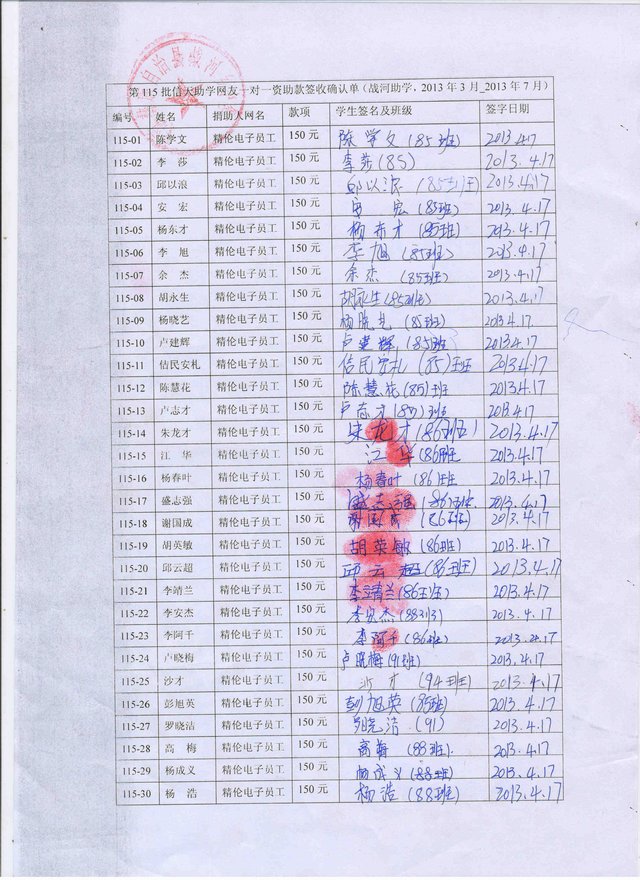 第115批信天助学网友一对一资助款签收确认单（战河助学，2013年3月_2013年7月）
编号 姓名 捐助人网名 款项 学生签名及班级 签字日期
115-01 陈学文 精伦电子员工 150元 陈学文(85班) 2013.4.17
115-02 李 莎 精伦电子员工 150元 李莎(85) 2013.4.17
115-03 邱以浪 精伦电子员工 150元 邱以浪(85班) 2013.4.17
115-04 安 宏 精伦电子员工 150元 安 宏(85班) 2013.4.17
115-05 杨东才 精伦电子员工 150元 杨东才(85班) 2013.4.17
115-06 李 旭 精伦电子员工 150元 李旭(85班) 2013.4.17
115-07 余 杰 精伦电子员工 150元 余杰(85班) 2013.4.17
115-08 胡永生 精伦电子员工 150元 胡永生(85班) 2013.4.17
115-09 杨晓艺 精伦电子员工 150元 杨晓艺(85班) 2013.4.17
115-10 卢建辉 精伦电子员工 150元 卢建辉(85班) 2013.4.17
115-11 佶民安札 精伦电子员工 150元 佶民安札(85)班 2013.4.17
115-12 陈慧花 精伦电子员工 150元 陈慧花(85)班 2013.4.17
115-13 卢志才 精伦电子员工 150元 卢志才(85)班 2013.4.17
115-14 朱龙才 精伦电子员工 150元 朱龙才(86班) 2013.4.17
115-15 江 华 精伦电子员工 150元 江 华(86班 2013.4.17
115-16 杨春叶 精伦电子员工 150元 杨春叶(86)班 2013.4.17
115-17 盛志强 精伦电子员工 150元 盛志强(86班 2013.4.17
115-18 谢国成 精伦电子员工 150元 谢国成(86班) 2013.4.17
115-19 胡英敏 精伦电子员工 150元 胡英敏(86班) 2013.4.17
115-20 邱云超 精伦电子员工 150元 邱云超(86班) 2013.4.17
115-21 李靖兰 精伦电子员工 150元 李靖兰(86班) 2013.4.17
115-22 李安杰 精伦电子员工 150元 李安杰(88班) 2013.4.17
115-23 李阿千 精伦电子员工 150元 李阿千(86班) 2013.4.17
115-24 卢晓梅 精伦电子员工 150元 卢晓梅(91班) 2013.4.17
115-25 沙才 精伦电子员工 150元 沙才(94班) 2013.4.17
115-26 彭旭英 精伦电子员工 150元 彭旭英(85班) 2013.4.17
115-27 罗晓洁 精伦电子员工 150元 罗晓洁(91) 2013.4.17
115-28 高 梅 精伦电子员工 150元 高梅(88班) 2013.4.17
115-29 杨成义 精伦电子员工 150元 杨成义(88班) 2013.4.17
115-30 杨 浩 精伦电子员工 150元 杨浩(88班) 2013.4.17